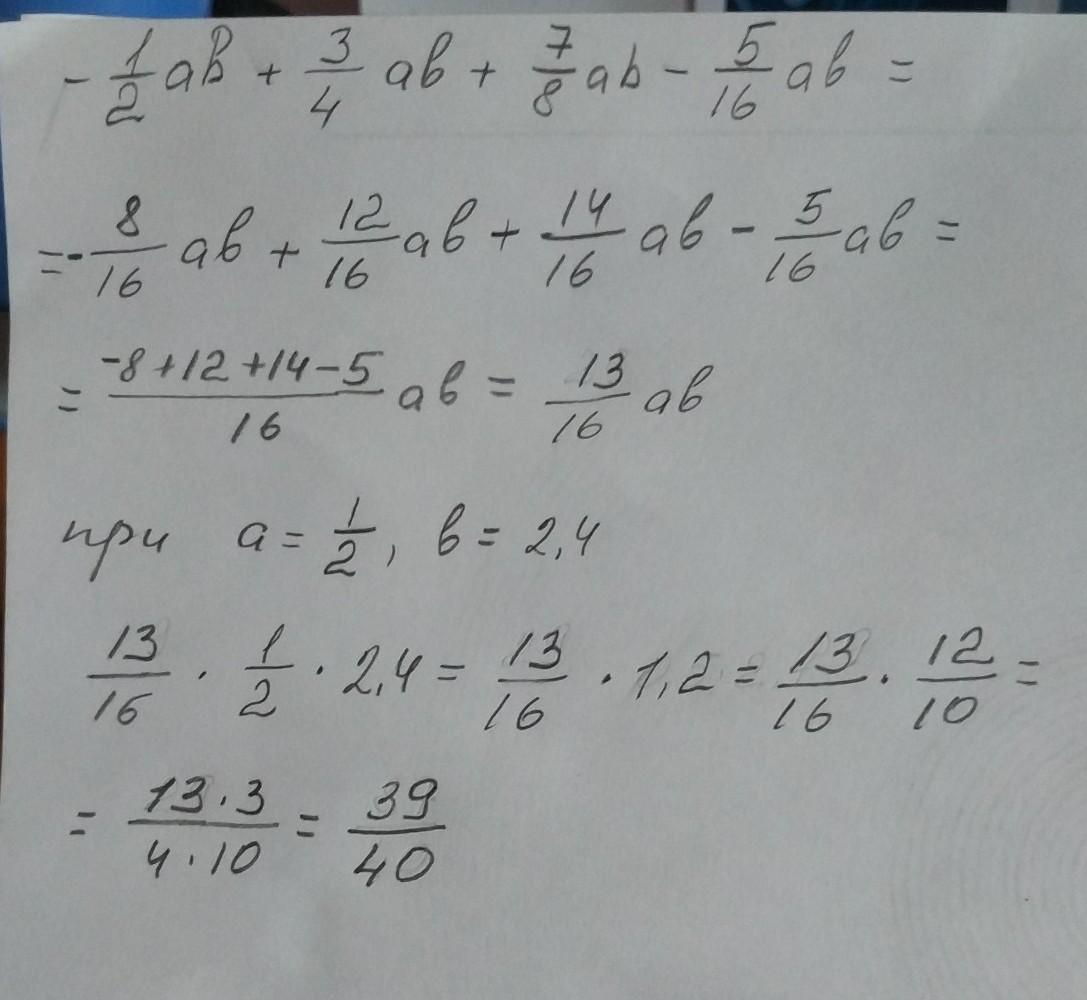 - 1/2 ab + 3/4 ab + 7/8 ab - 5/16 ab =
= - 8/16 ab + 12/16 ab + 14/16 ab - 5/16 ab =
= (-8+12+14-5)/16 ab = 13/16 ab
при a = 1/2, b = 2,4
13/16 · 1/2 · 2,4 = 13/16 · 1,2 = 13/16 · 12/10 =
= (13·3)/(4·10) = 39/40